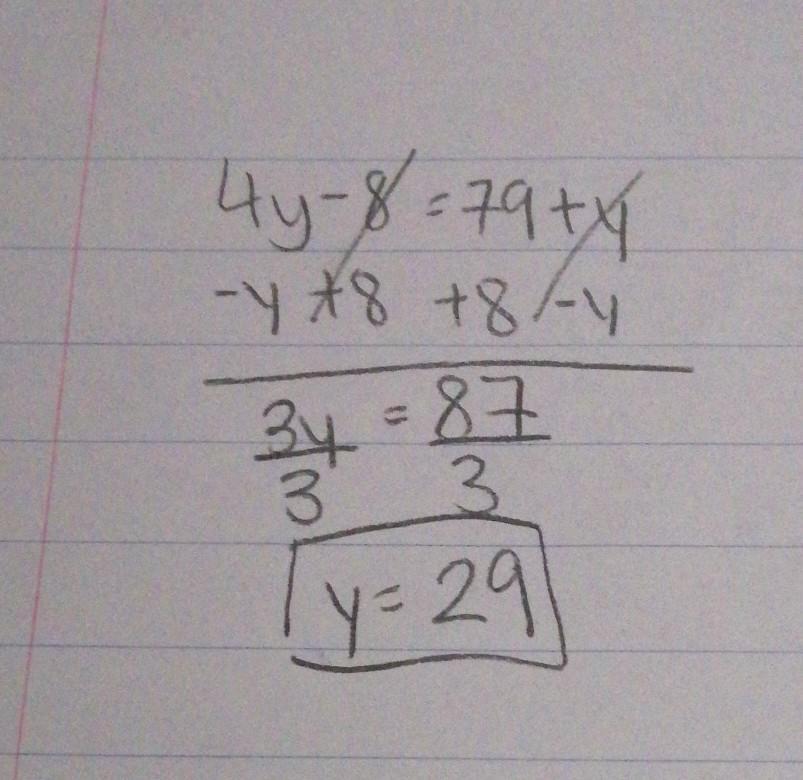 4y-8=79+y
-y+8 +8-y
3y = 87
3 3
y=29